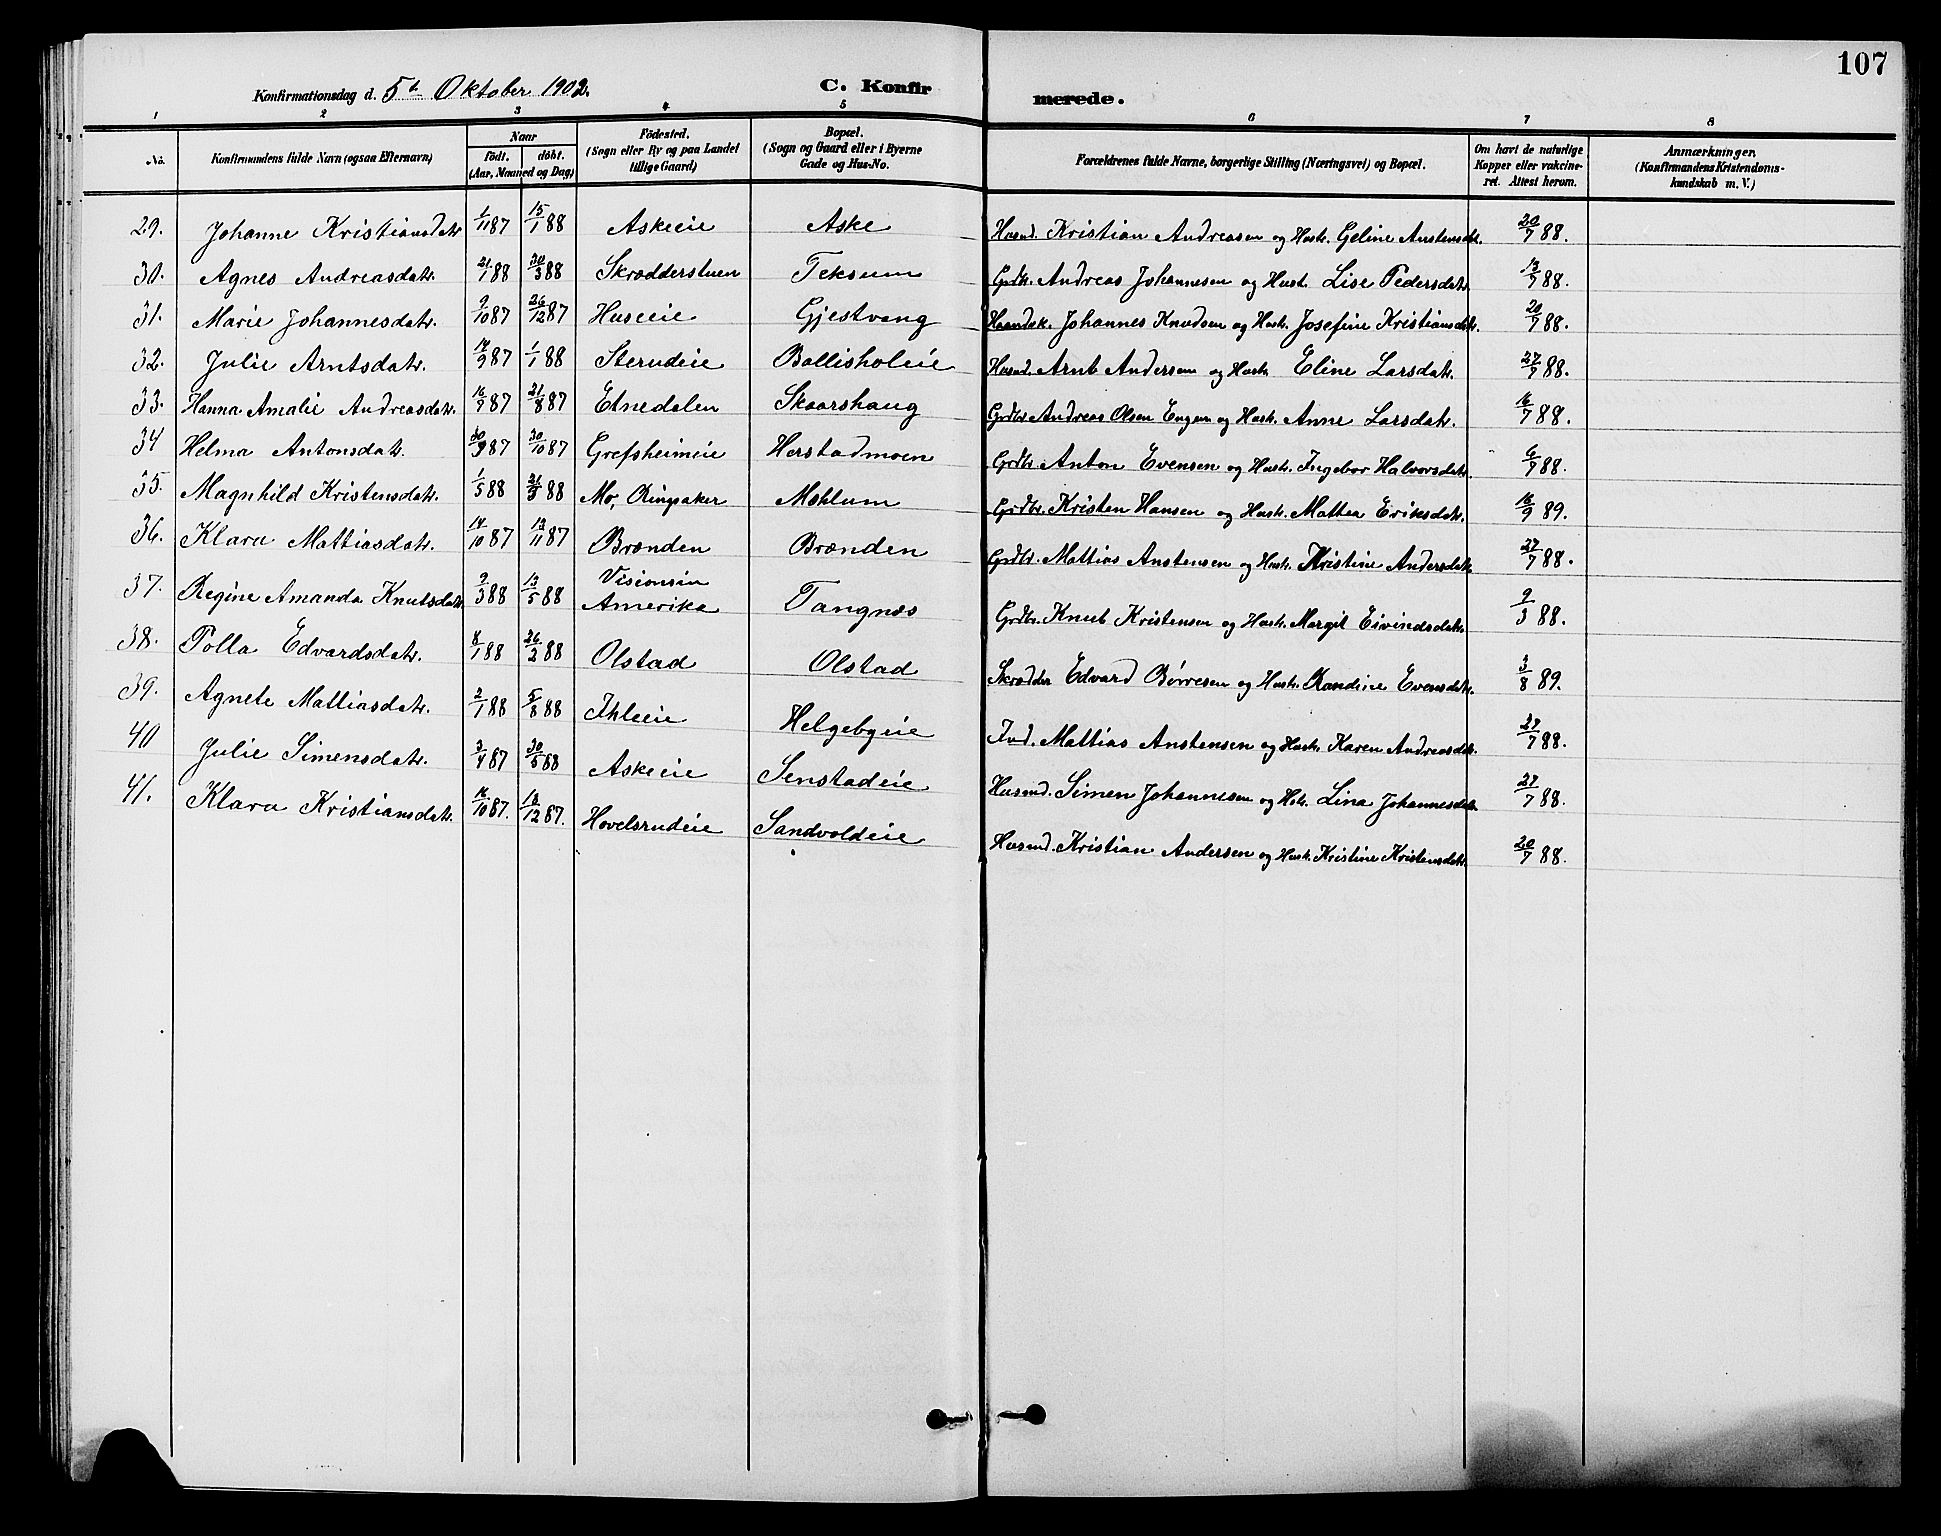 107
Konfirmationsdag d. 5te Oktober 1902. C. Konfirmerede.
1 2 3 4 5 6 7 8
No. Konfirmandens fulde Navn (ogsaa Efternavn) Naar födt. döbt. (Aar, Maaned og Dag) Födested. (Sogn eller By og paa Landet tillige Gaard) Bopæl. (Sogn og Gaard eller i Byerne Gade og Hus-No. Forældrenes fulde Navne, borgerlige Stilling (Næringsvei) og Bopæl. Om havt de naturlige Kopper eller vakcineret. Attest herom. Anmærkninger. (Konfirmandens Kristendomskundskab m. V.)
29. Johanne Kristiansdatr. 1/11 87 15/1 88 Askeeie Aske Husmd. Kristian Andreasen og Hustr. Geline Anstensdtr. 20/7 88.
30. Agnes Andreasdatr. 21/1 88 30/3 88 Skrædderstuen Teksum Grdbr. Andreas Johannesen og Hust. Lise Pedersdatr. 13/7 88.
31. Marie Johannesdatr. 9/10 87 26/12 87 Huseeie Gjestvang Haandk. Johannes Knudsen og Hustr. Josefine Kristiansdtr. 20/7 88.
32. Julie Arntsdatr. 14/9 87 1/1 88 Sterudeie Bollisholeie Husmd. Arnt Andersen og Hustr. Eline Larsdatr. 27/7 88.
33. Hanna Amalie Andreasdatr. 87 21/8 87 Etnedalen Skaarshaug Grdbr. Andreas Olsen Engen og Hustr. Anne Larsdatr. 16/7 88.
34 Helma Antonsdatr. 30/9 87 30/10 87 Grefsheimeie Herstadmoen Grdbr. Anton Evensen og Hustr. Ingebor Halvorsdatr. 6/7 88.
35. Magnhild Kristensdatr. 1/5 88 21/5 88 Mo, Ringsaker Mehlum Grdbr. Kristen Hansen og Hustr. Mathea Eriksdatr. 16/9 89.
36. Klara Mattiasdatr. 14/10 87 13/11 87 Brænden Brænden Grdbr. Mattias Anstensen og Hustr. Kristine Andersdatr. 27/7 88.
37. Regine Amanda Knutsdatr. 9/3 88 13/5 88 Visionsin Amerika Tangnæs Grdbr. Knut Kristensen og Hustr. Margit Eivindsdatr. 9/3 88.
38. Polla Edvardsdatr. 8/1 88 26/2 88 Olstad Olstad Skrædder Edvard Børresen og Hustr. Randine Evensdatr. 3/8 89.
39. Agnete Mattiasdatr. 2/1 88 5/8 88 Ihleeie Helgebyeie Ind. Mattias Anstensen og Hustr. Karen Andreasdatr. 27/7 88.
40 Julie Simensdatr. 3/4 87 30/5 88 Askeeie Senstadeie Husmd. Simen Johannesen og Hstr. Lina Johannesdatr. 27/7 88.
41. Klara Kristiansdatr. 16/10 87. 18/12 87. Hovelsrudeie Sandvoldeie Husmd. Kristian Andersen og Hustr. Kristine Kristensdatr. 20/7 88.